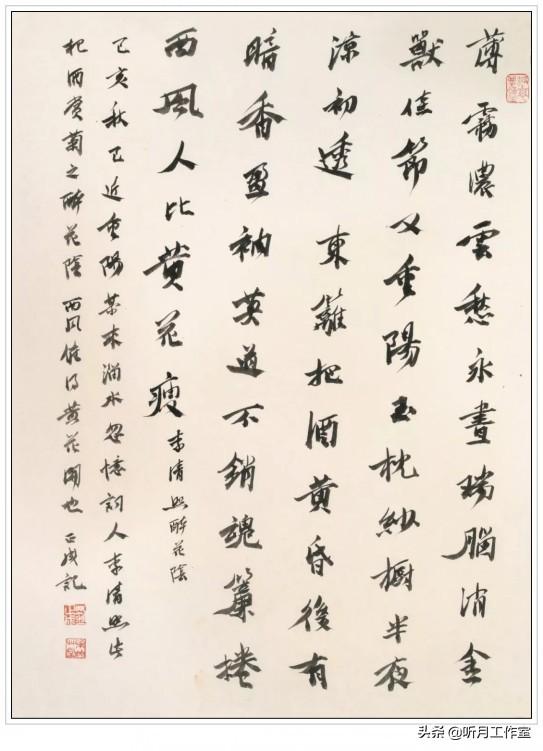 薄霧濃雲愁永晝瑞腦消金
獸佳節又重陽玉枕紗橱半夜
涼初透 東籬把酒黃昏後有
暗香盈袖莫道不銷魂簾捲
西風人比黄花瘦 李清照醉花陰
己亥秋已近重陽 水忽憶詞人李清照
把酒賞菊之醉花陰 西風催得黄花開也 記
头条 @听月工作室